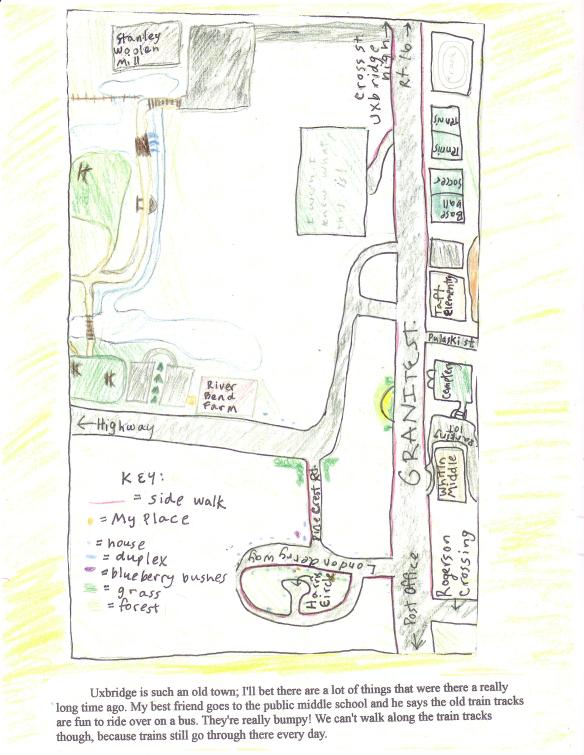 Stanley
Woolen
Mill
Cross st
Uxbridge
high
Rt. 16
Tennis
Tennis
Soccer
Base
ball
I wish I
knew what
this is!
Taft
Elementry
Pulaski st
GRANITE ST.
Cemetery
PARKING
LOT
Whitin
Middle
River
Bend
Farm
←Highway
Pine Crest Rd.
Londonderry way
Harris
Circle
Post Office
Rogerson
Crossing
KEY:
= side walk
= My Place
= house
= duplex
= blueberry bushes
= grass
= forest
Uxbridge is such an old town; I'll bet there are a lot of things that were there a really
long time ago. My best friend goes to the public middle school and he says the old train tracks
are fun to ride over on a bus. They're really bumpy! We can't walk along the train tracks
though, because trains still go through there every day.